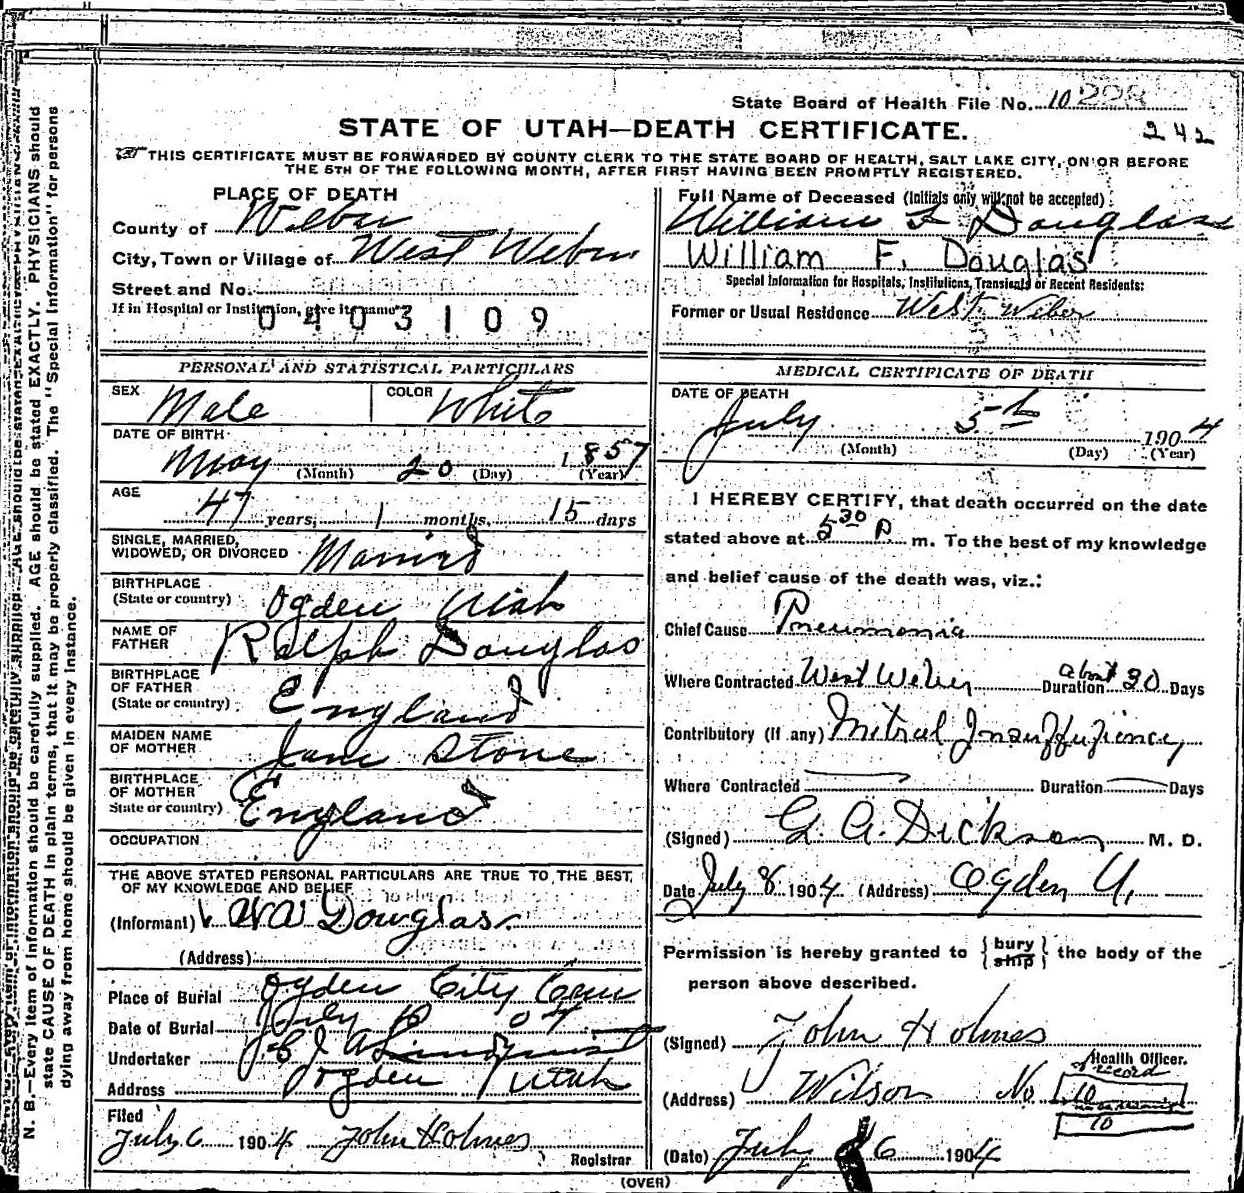 State Board of Health File No. 10228
STATE OF UTAH—DEATH CERTIFICATE.
242
THIS CERTIFICATE MUST BE FORWARDED BY COUNTY CLERK TO THE STATE BOARD OF HEALTH, SALT LAKE CITY, ON OR BEFORE
THE 5TH OF THE FOLLOWING MONTH, AFTER FIRST HAVING BEEN PROMPTLY REGISTERED.
PLACE OF DEATH
County of Weber
City, Town or Village of West Weber
Street and No.
If in Hospital or Institution, give its name
0403109
Full Name of Deceased (Initials only will not be accepted)
William F Douglas
William F. Douglas
Special Information for Hospitals, Institutions, Transients or Recent Residents:
Former or Usual Residence West Weber
PERSONAL AND STATISTICAL PARTICULARS
SEX Male COLOR White
DATE OF BIRTH
May (Month) 20 (Day) 1857 (Year)
AGE
47 years, 1 months, 15 days
SINGLE, MARRIED,
WIDOWED, OR DIVORCED Married
BIRTHPLACE
(State or country) Ogden Utah
NAME OF
FATHER Ralph Douglas
BIRTHPLACE
OF FATHER
(State or country) England
MAIDEN NAME
OF MOTHER Jane Stone
BIRTHPLACE
OF MOTHER
State or country) England
OCCUPATION
THE ABOVE STATED PERSONAL PARTICULARS ARE TRUE TO THE BEST
OF MY KNOWLEDGE AND BELIEF
(Informant) W W Douglas.
(Address)
Place of Burial Ogden City Cem
Date of Burial July 04
Undertaker Lindquist
Address Ogden Utah
Filed
July 6 1904 John Holmes
Registrar
MEDICAL CERTIFICATE OF DEATH
DATE OF DEATH
July 5th 1904
(Month) (Day) (Year)
I HEREBY CERTIFY, that death occurred on the date
stated above at 5 30 P m. To the best of my knowledge
and belief cause of the death was, viz.:
Chief Cause Pneumonia
Where Contracted West Weber Duration about 30 Days
Contributory (If any) Mitral Insuffiziency
Where Contracted Duration Days
(Signed) G. A. Dickson M. D.
Date July 8 1904 (Address) Ogden U.
Permission is hereby granted to { bury ship } the body of the
person above described.
(Signed) John Holmes
Health Officer.
(Address) Wilson No record 10
10
(Date) July 6 1904
(OVER)
N. B.—Every item of information should be carefully supplied. AGE should be stated EXACTLY. PHYSICIANS should
state CAUSE OF DEATH in plain terms, that it may be properly classified. The "Special Information" for persons
dying away from home should be given in every instance.